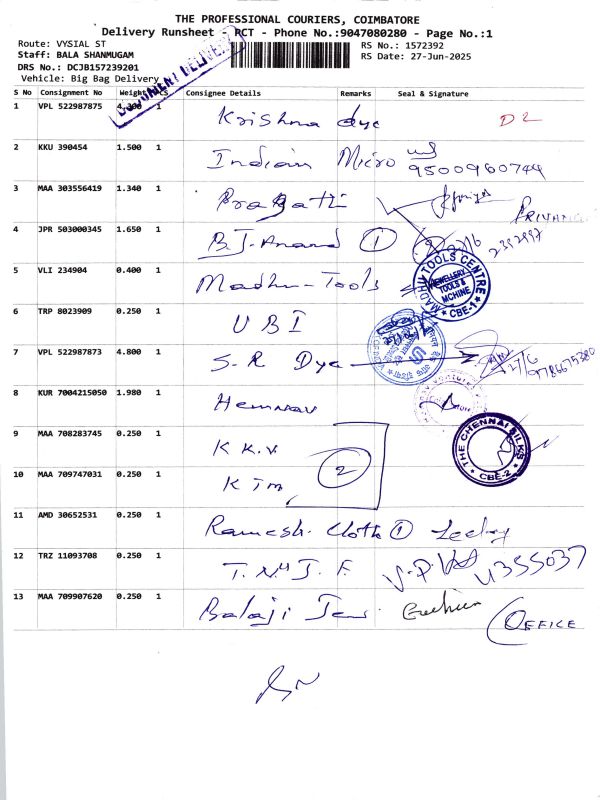 THE PROFESSIONAL COURIERS, COIMBATORE
Delivery Runsheet - PCT - Phone No.:9047080280 - Page No.:1
Route: VYSIAL ST RS No.: 1572392
Staff: BALA SHANMUGAM RS Date: 27-Jun-2025
DRS No.: DCJB157239201
Vehicle: Big Bag Delivery
S No Consignment No Weight PCS Consignee Details Remarks Seal & Signature
1 VPL 522987875 1 Krishna dye D2
2 KKU 390454 1.500 1 Indian Micro 9500960744
3 MAA 303556419 1.340 1 Pragathi
4 JPR 503000345 1.650 1 B.J. Anand 1
5 VLI 234904 0.400 1 Madhu-Tools
MADHU TOOLS CENTRE
JEWELLERY TOOLS & MCHINE
CBE-1
6 TRP 8023909 0.250 1 UBI
7 VPL 522987873 4.800 1 S.R Dye 27/6
9786675380
8 KUR 7004215050 1.980 1
9 MAA 708283745 0.250 1 K K.V 2
THE CHENNAI SILKS
CBE-2
10 MAA 709747031 0.250 1 K Tm
11 AMD 30652531 0.250 1 Ramesh. Cloth 1
12 TRZ 11093708 0.250 1 4355037
13 MAA 709907620 0.250 1 Balaji OFFICE